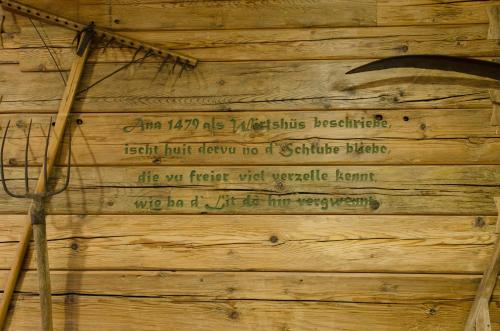 Ana 1479 als Wirtshüs beschriebe,
ischt huit dervu no d'Schtube bliebe,
die vu freier viel verzelle kennt,
wie ba d'Lit dö hin vergwennt.